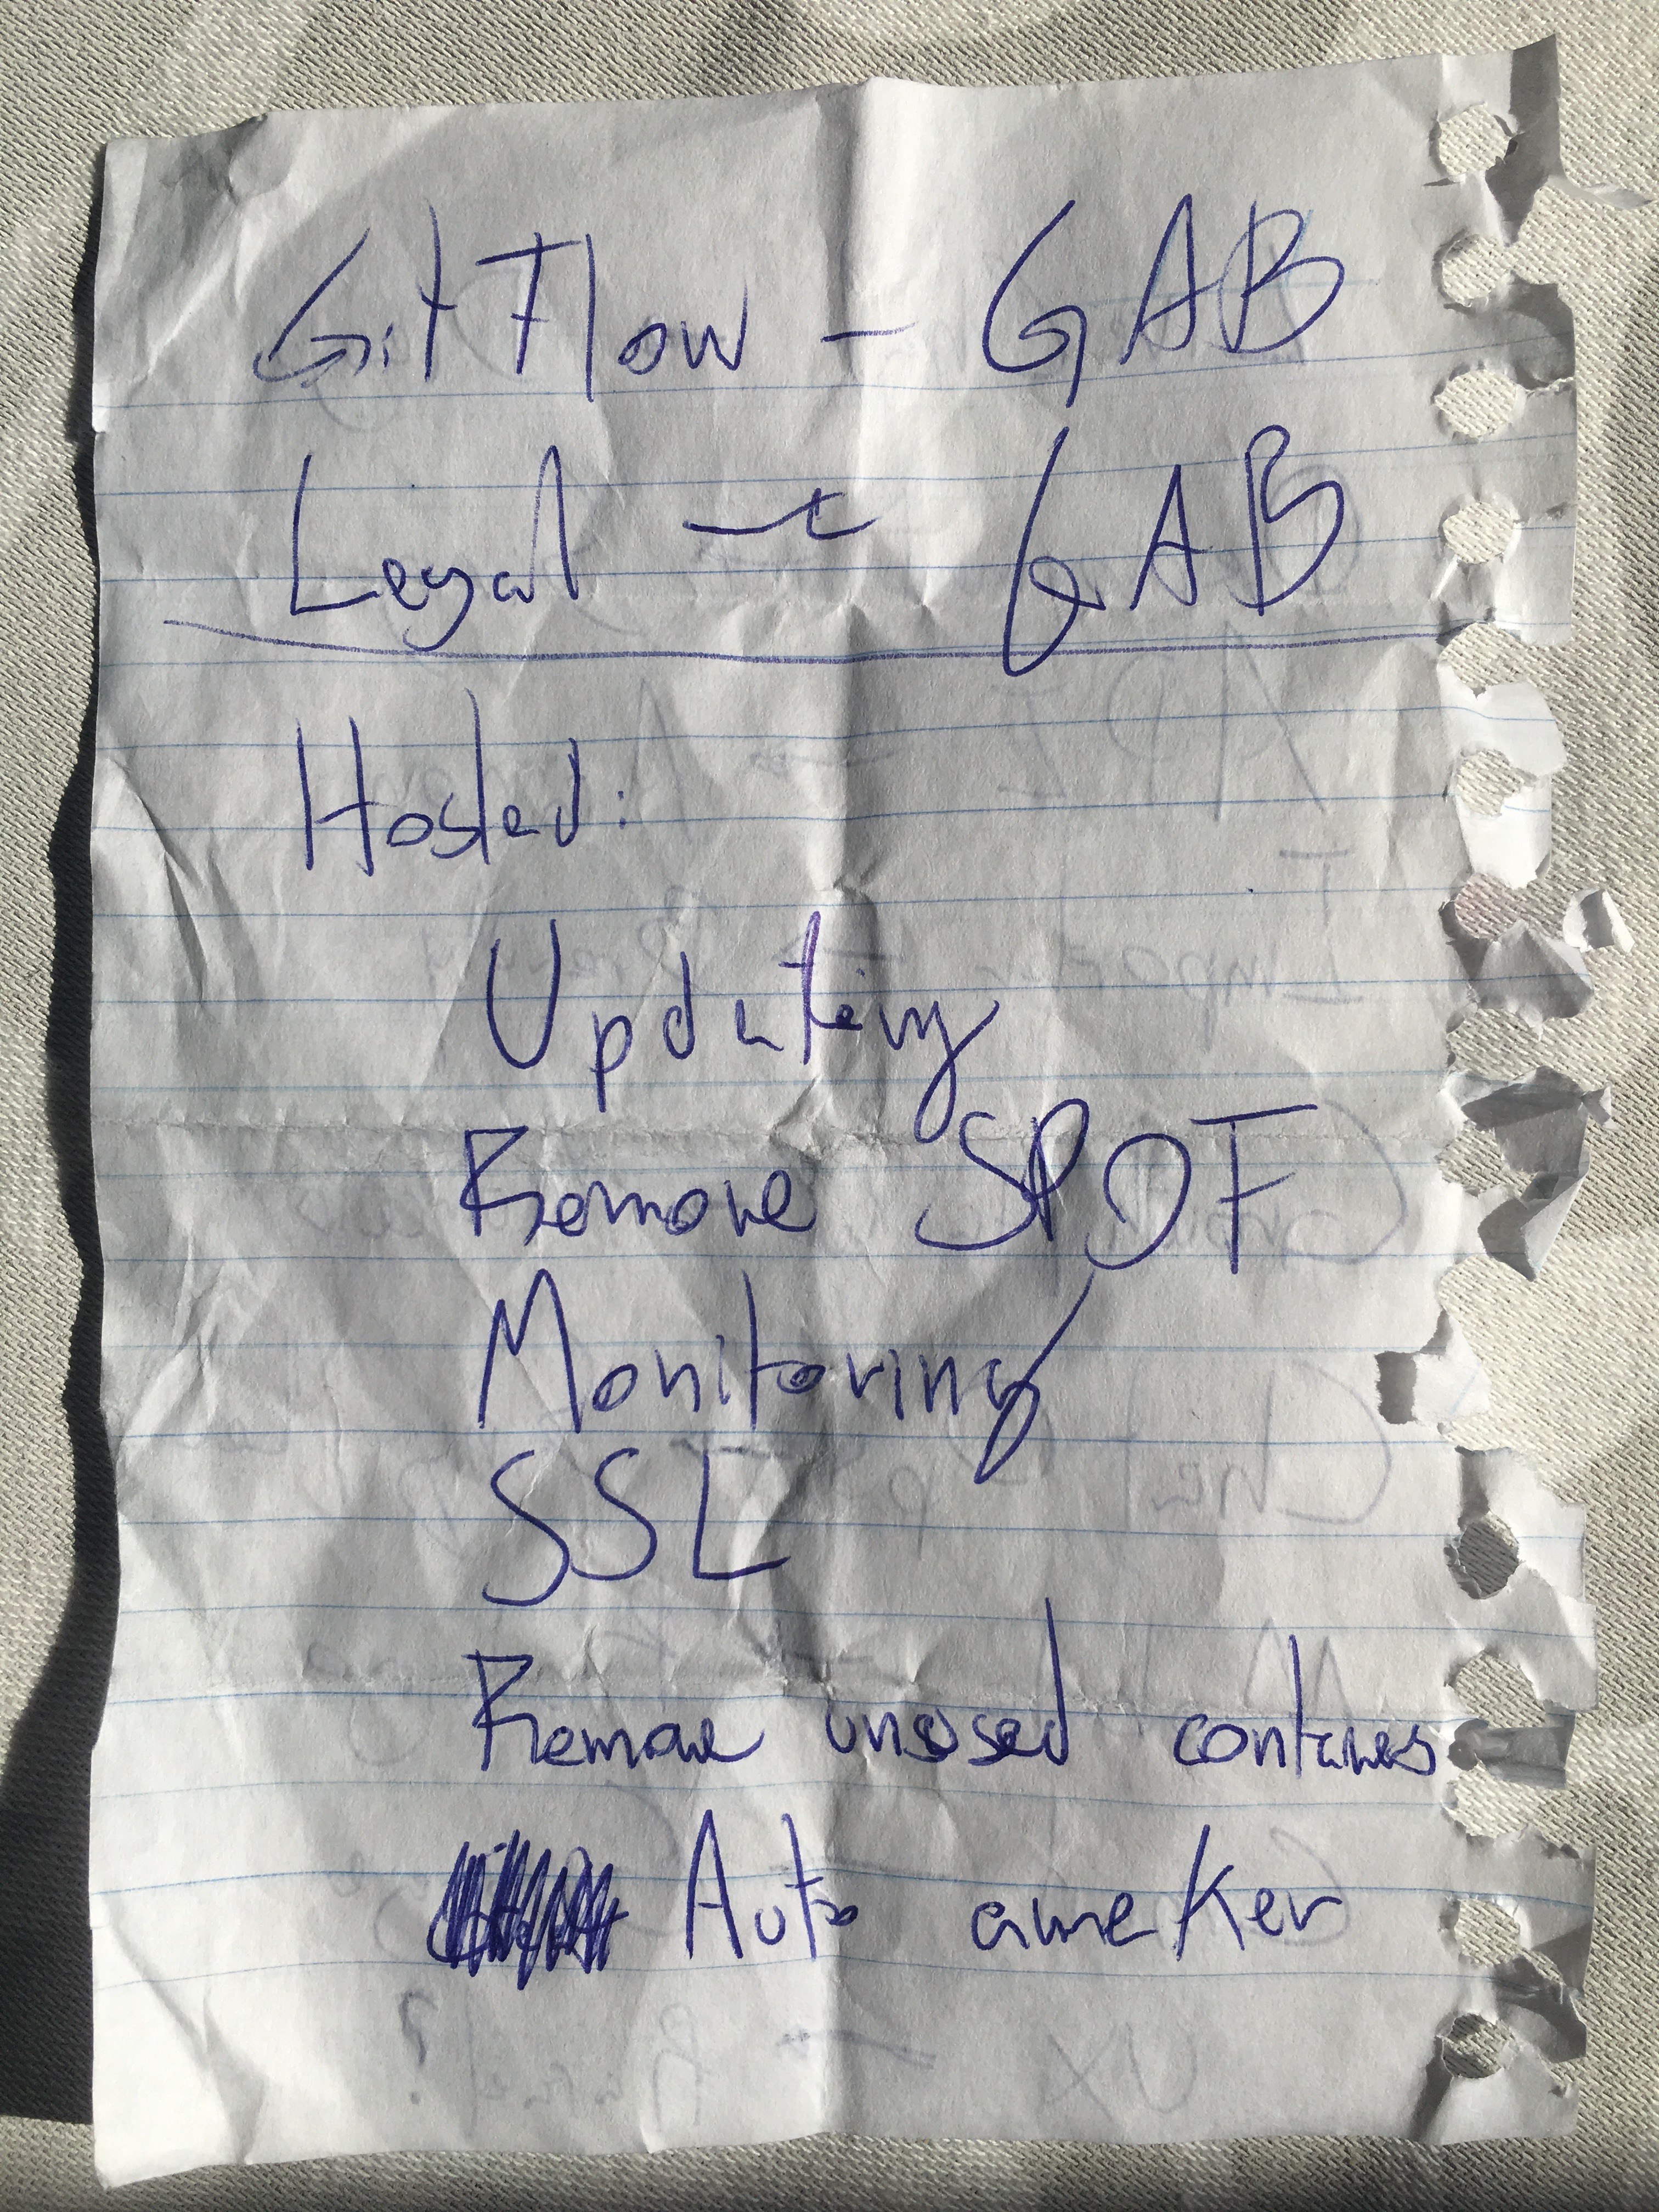 GitFlow - GAB
Legal - GAB
Hosted:
Updating
Remove SPOF
Monitoring
SSL
Remove unused
Auto